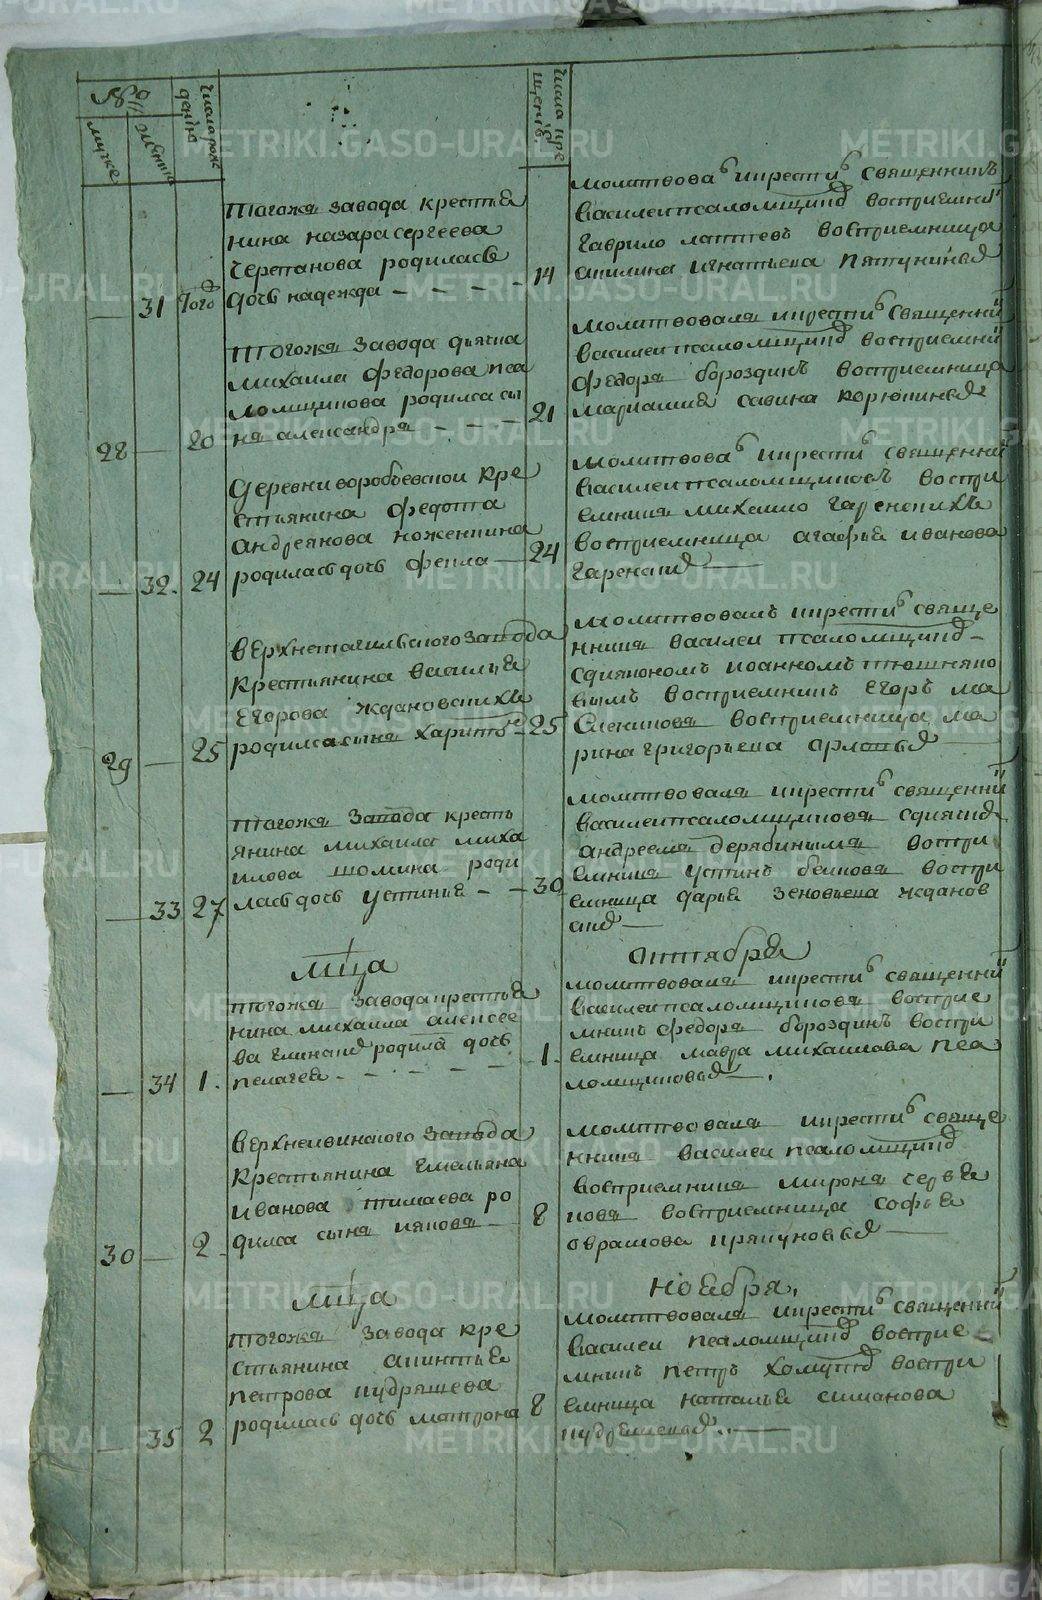 METRIKI.GASO-URAL.RU
№
муже
женска
числа рож
дения
числа кре
щения
31
того
тогожа завода крестья
нина назара сергеева
черепанова родилась
дочь надежда
14
молитвова и крести священникъ
василеи псаломщиковъ восприемник
гаврило лаптевъ восприемница
акилина игнатьева пятунинья
28
20
тогожа завода дьячка
михаила федорова пса
ломщикова родился сы
на александра
21
молитвовала и крести священни
василеи псаломщико восприемни
федора бороздинъ восприемница
мариамия савина корюкинья
32
24
деревни воробьевскои кре
стьянина федота
андреянова коженкина
родилась дочь фекла
24
молитвова и крести священни
василеи псаломщиковъ воспри
емника михаило гаренскихъ
восприемница агафья иванова
гаренская
29
25
верхнетагильского завода
крестьянина василья
егорова ждановскихъ
родился сына харито
25
молитвовалъ и крести свяще
нника василеи псаломщико
сдияконом иоанном тюшняко
вымъ восприемникъ егоръ ма
сленикова восприемница ма
рина григорьева орлова
33
27
тогожа завода кресть
янина михаила миха
илова шомина роди
лась дочь устинья
30
молитвовала и крести священни
василеи псаломщикова сдиячко
андреема дерябиныма воспри
емника устинъ беикова воспри
емница дарья зеновьева жданов
ская
мца
октября
34
1
тогожа завода крестья
нина михаила алексее
ва глинская родила дочь
пелагея
1
молитвовала и крести священни
василеи псаломщикова восприе
мникъ федора бороздинъ воспри
емница мавра михаилова пса
ломщиковья
30
2
верхнеивинского завода
крестьянина емельяна
иванова тимаева ро
дился сына иякова
8
молитвовала и крести свяще
нника василеи псаломщико
восприемника мирона
кова восприемница софья
аврамова пряпуновья
мца
ноября
35
2
тогожа завода кре
стьянина акинтья
петрова кудряшева
родилась дочь матрона
8
молитвовала и крести священни
василеи псаломщико восприе
мникъ петръ хомуто воспри
емница наталья симанова
кудряшева